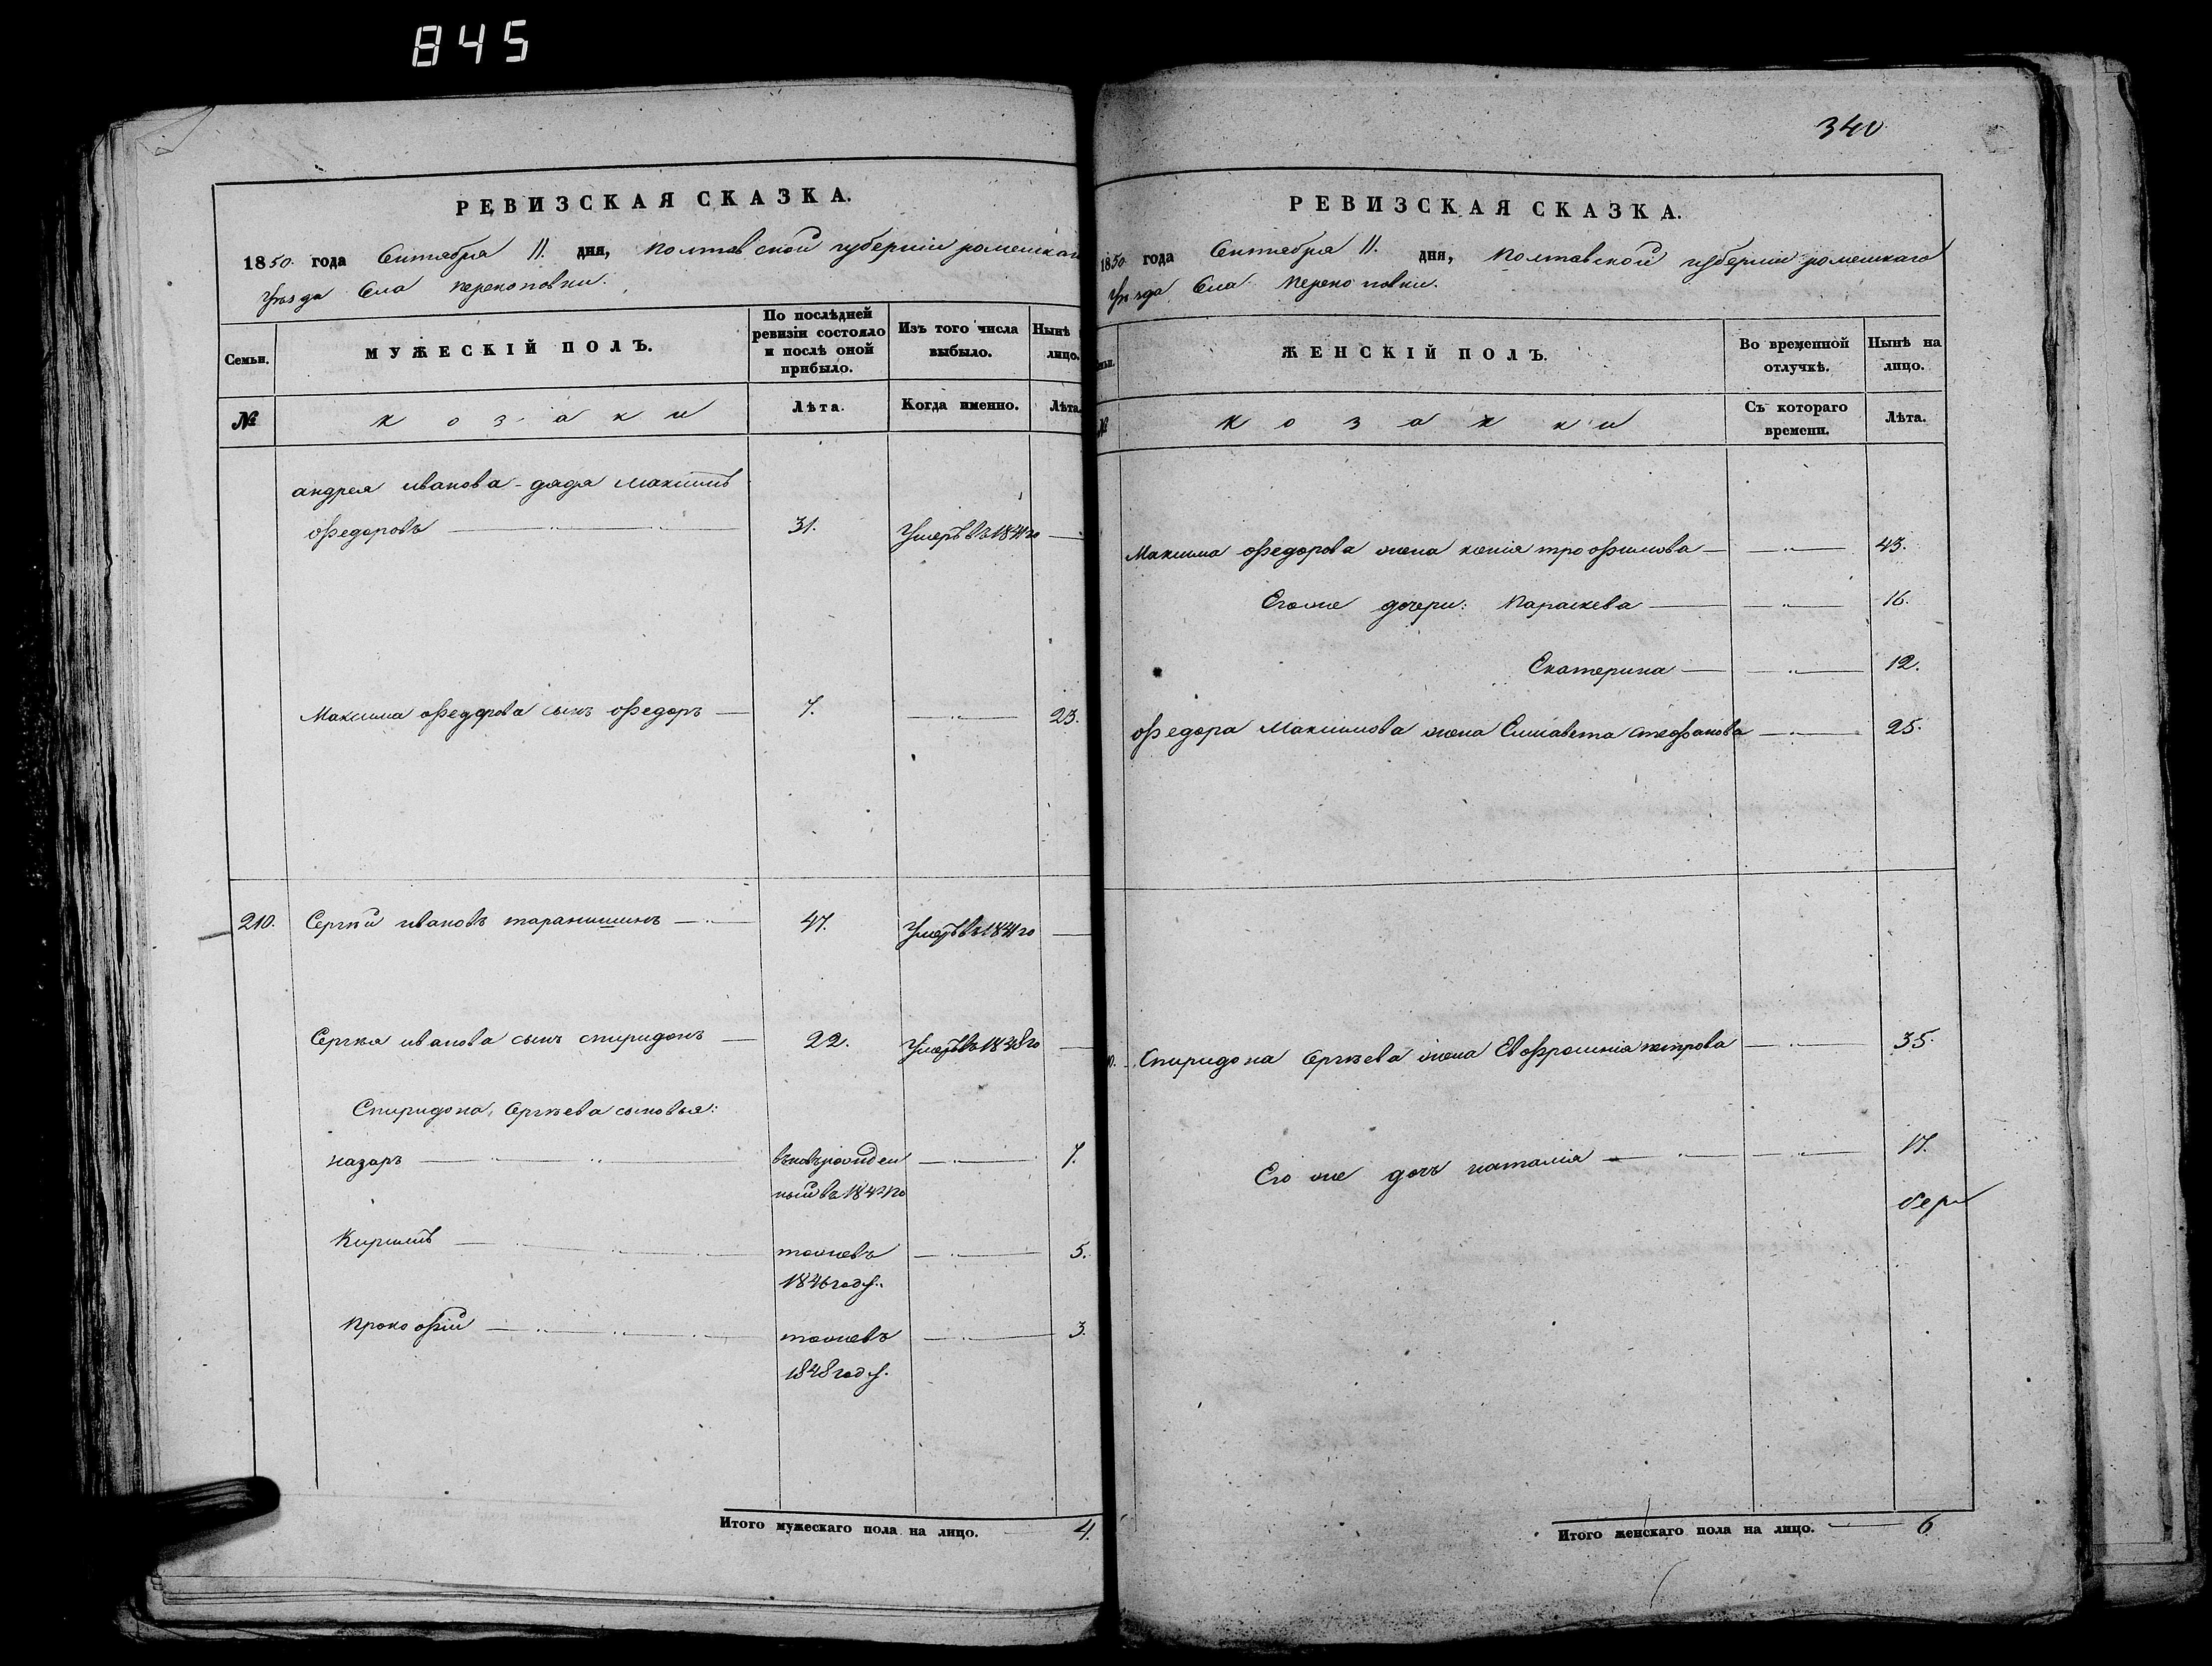 845
РЕВИЗСКАЯ СКАЗКА.
1850 года Сентября 11. дня, Полтавской губерніи роменскаго
Уѣзда Села Перекоповки.
Семьи.
МУЖЕСКІЙ ПОЛЪ.
По послѣдней ревизіи состояло и послѣ оной прибыло.
Изъ того числа выбыло.
Нынѣ
лицо.
№
козаки
Лѣта.
Когда именно.
Лѣта
андрея иванова - дядя Максимъ
Федоровъ 31. Умеръ въ 1841 го
Максима Федорова сынъ Федоръ 7. 23.
210. Сергѣй ивановъ таранишинъ 47. Умеръ въ 1841 го
Сергѣя иванова сынъ спиридонъ 22. Умеръ въ 1848 го
Спиридона Сергѣева сыновья:
назаръ въновърожден 7.
ный въ
Кирилъ тоже въ 5.
1846 году.
Прокофій тоже въ 3.
1848 году.
Итого мужескаго пола на лицо. 4.
340
РЕВИЗСКАЯ СКАЗКА.
1850 года Сентября 11. дня, Полтавской губерніи роменскаго
Уѣзда Села Перекоповки.
ЖЕНСКІЙ ПОЛЪ.
Во временной отлучкѣ.
Нынѣ на лицо.
№
козачки
Съ котораго времени.
Лѣта.
Максима Федорова жена ксенія трофимова 43.
Его же дочери: Параскева 16.
Екатерина 12.
Федора Максимова жена Елисавета стефанова 25.
Спиридона Сергѣева жена Евфросинія петрова 35.
Его же дочь наталія 17.
Итого женскаго пола на лицо. 6